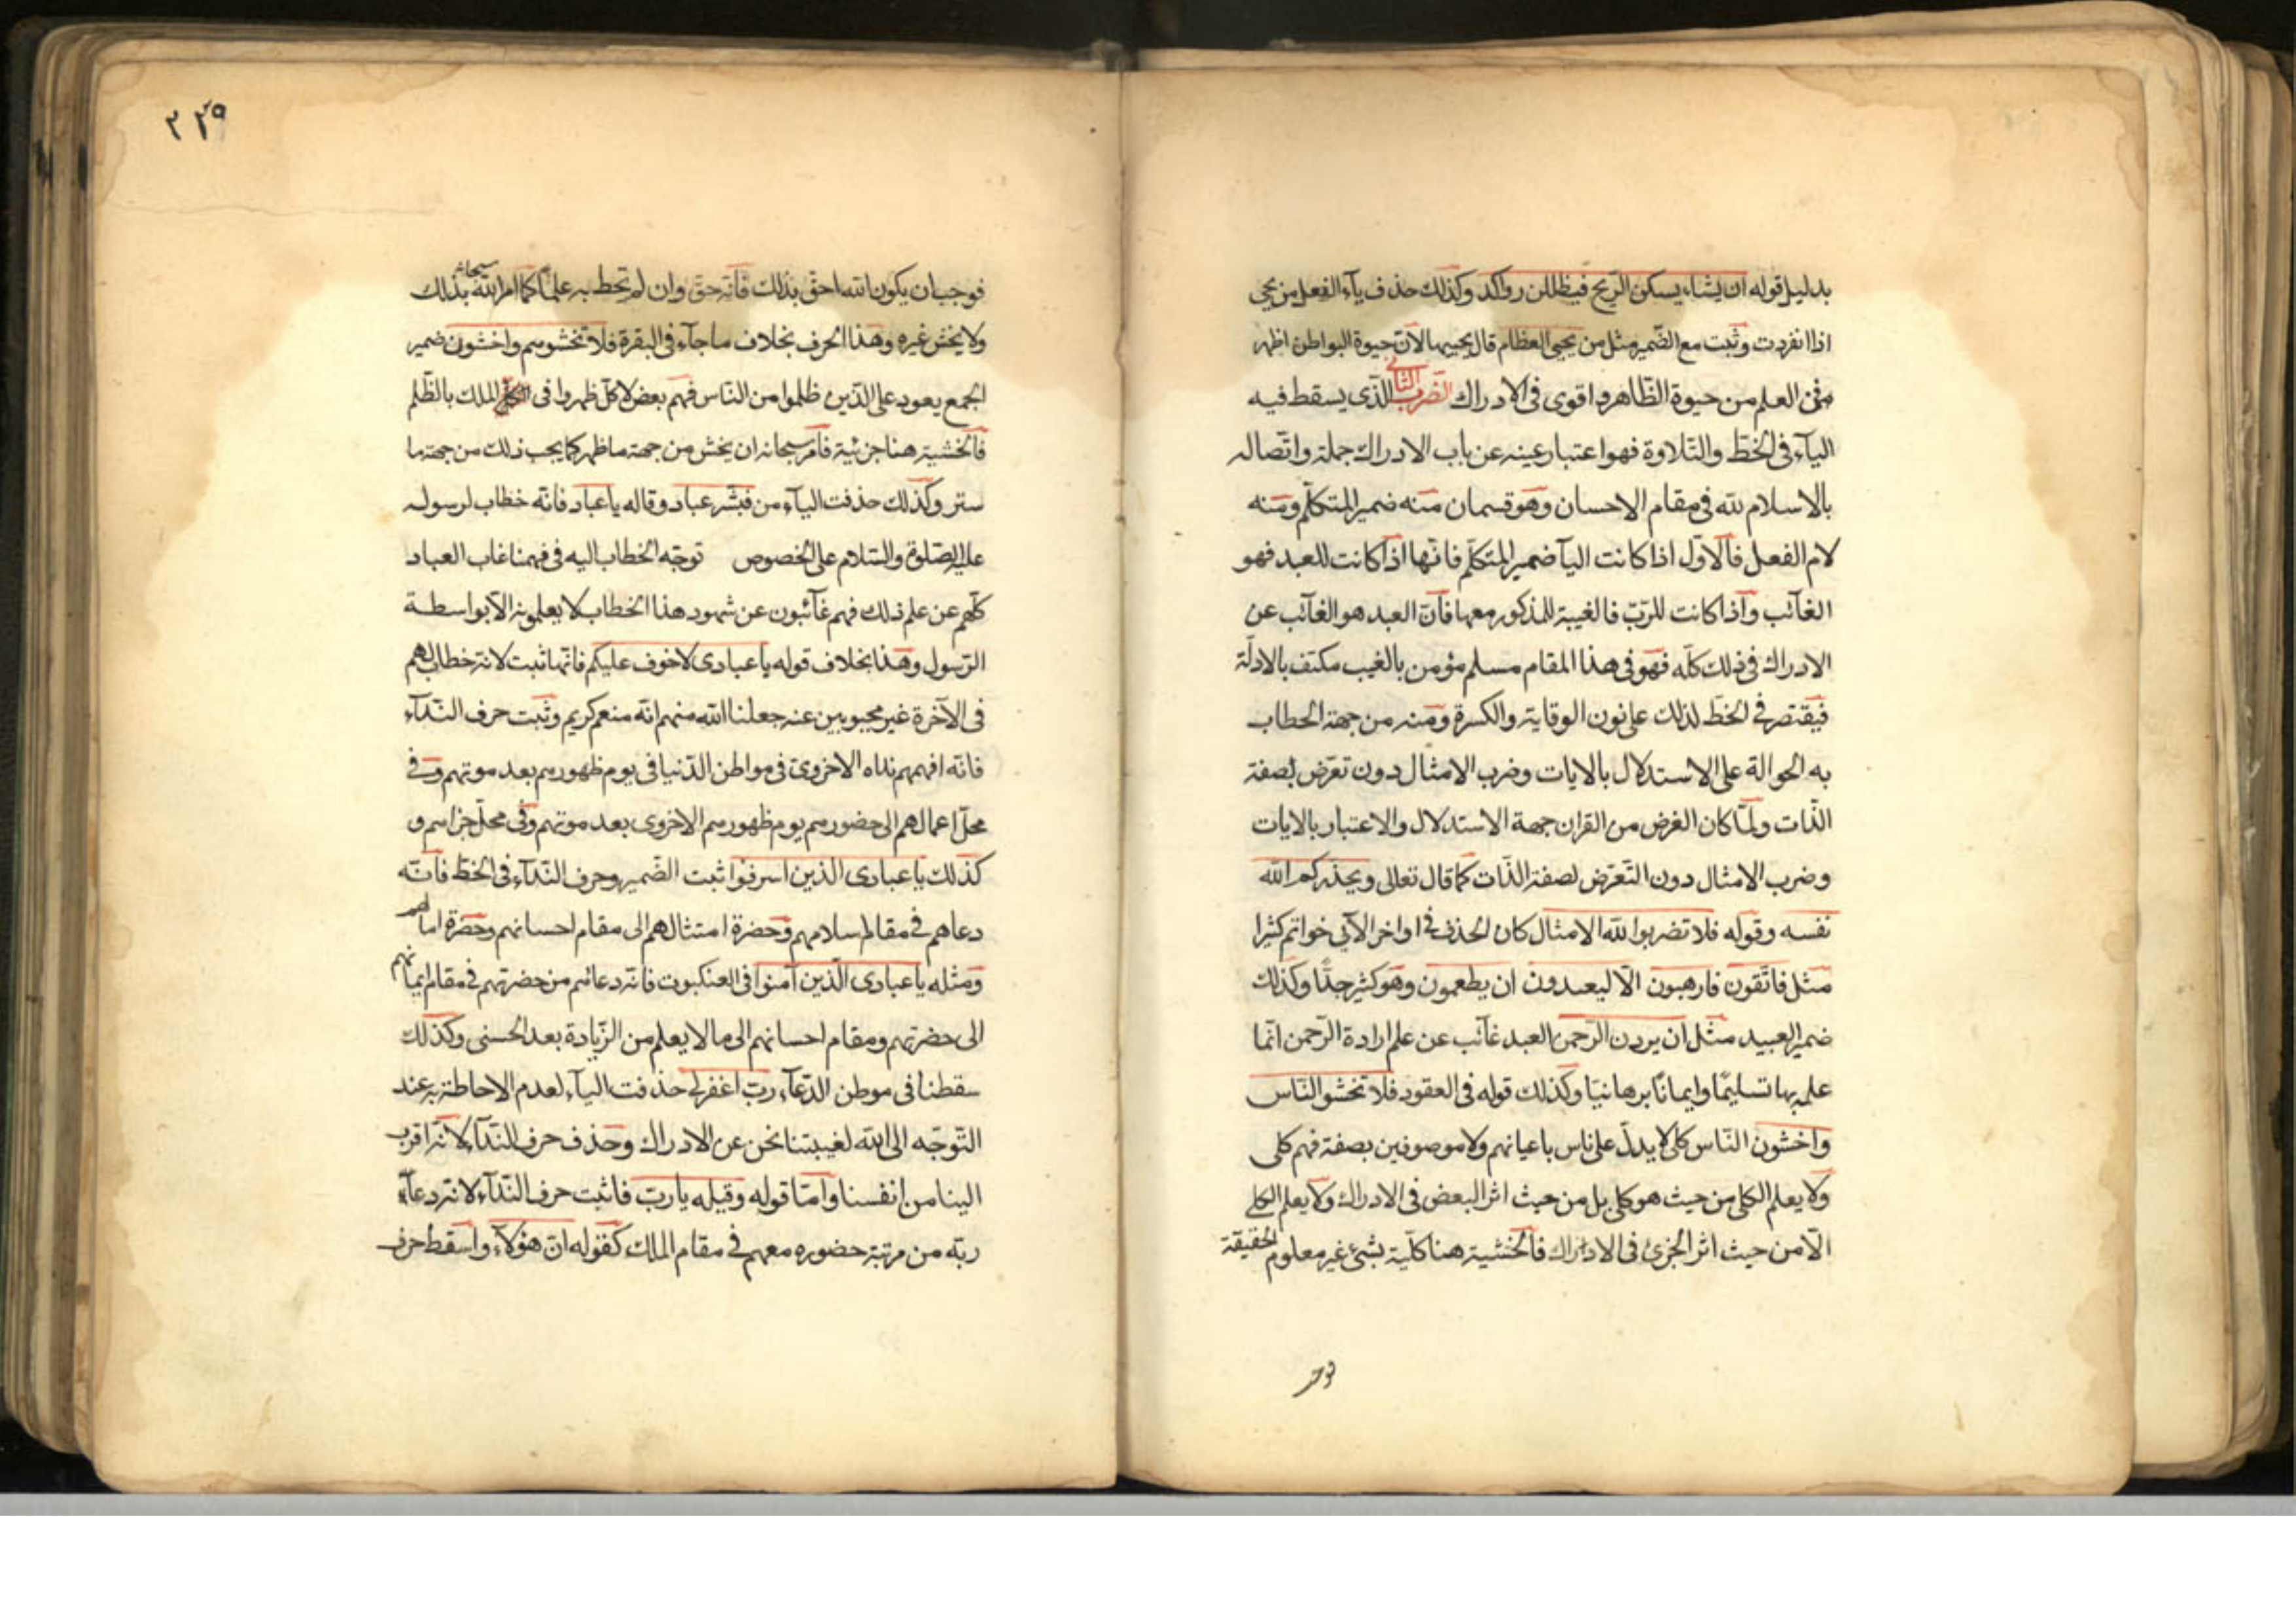 بدليل قوله ان يشاء يسكن الريح فيظللن رواكد وكذلك حذف ياء الفعل من يحي
اذا انفردت وثبت مع الضمير مثل من يحيي العظام قال يحييها لان حيوة البواطن اظهر
في العلم من حيوة الظاهر واقوى في الادراك الضرب الثاني الذي يسقط فيه
الياء في الخط والتلاوة فهو اعتبار غيبة عن باب الادراك جملة واتصاله
بالاسلام لله في مقام الاحسان وهو قسمان منه ضمير المتكلم ومنه
لام الفعل فالاول اذا كانت اليا ضمير المتكلم فانها اذا كانت للعبد فهو
الغائب واذا كانت للرب فالغيبة للمذكور معها فان العبد هو الغائب عن
الادراك في ذلك كله فهو في هذا المقام مسلم مؤمن بالغيب مكتف بالادلة
فيقتصر في الخط لذلك على نون الوقاية والكسرة ومنه من جهة الخطاب
به الحوالة على الاستدلال بالايات وضرب الامثال دون تعرض لصفة
الذات ولما كان الغرض من القران جهة الاستدلال والاعتبار بالايات
وضرب الامثال دون التعرض لصفة الذات كما قال تعالى ويحذركم الله
نفسه وقوله فلا تضربوا لله الامثال كان الحذف في اواخر الآي خواتم كثيرا
مثل فاتقون فارهبون الا ليعبدون ان يطعمون وهو كثير جدا وكذلك
ضمير العبيد مثل ان يردن الرحمن العبد غائب عن علم ارادة الرحمن انما
علمه بها تسليما وايمانا برهانيا وكذلك قوله في العقود فلا تخشوا الناس
واخشون الناس كلي لا يدل على ناس باعيانهم ولا موصوفين بصفة فهم كلي
ولا يعلم الكلي من حيث هو كلي بل من حيث اثر البعض في الادراك ولا يعلم الكلي
الا من حيث اثر الجزئ في الادراك فالخشية هنا كلية بشئ غير معلوم الحقيقة
فوجب
٢٢٩
فوجب ان يكون الله احق بذلك فانه حق وان لم تحط به علما كما امر الله سبحانه بذلك
ولا يخش غيره وهذا الحرف بخلاف ما جاء في البقرة فلا تخشوهم واخشون ضمير
الجمع يعود على الذين ظلموا من الناس فهم بعض لا كل ظهروا في الملك بالظلم
فالخشية هنا جزئية فامر سبحانه ان يخش من جهة ما ظهر كما يجب ذلك من جهة ما
ستر وكذلك حذفت الياء من فبشر عباد وقاله يا عباد فانه خطاب لرسوله
عليه الصلوة والسلام على الخصوص توجه الخطاب اليه في فهمنا غاب العباد
كلهم عن علم ذلك فهم غائبون عن شهود هذا الخطاب لا يعلمونه الا بواسطة
الرسول وهذا بخلاف قوله يا عبادى لا خوف عليكم فانها ثبت لانه خطاب لهم
في الآخرة غير محجوبين عنه جعلنا الله منهم انه منعم كريم وثبت حرف النداء
فانه افهمهم نداه الاخروى في مواطن الدنيا في يوم ظهورهم بعد موتهم وفي
محل اعمالهم الى حضورهم يوم ظهورهم الاخروى بعد موتهم وفي محل جزاهم و
كذلك يا عبادى الذين اسرفوا ثبت الضمير وحرف النداء في الخط فانه
دعاهم في مقام اسلامهم وحضرة امتثالهم الى مقام احسانهم وحضرة امالهم
ومثله يا عبادى الذين آمنوا في العنكبوت فانه دعاهم من حضرتهم في مقام ايمانهم
الى حضرتهم ومقام احسانهم الى ما لا يعلم من الزيادة بعد الحسنى وكذلك
سقطنا في موطن الدعاء رب اغفر لي حذفت الياء لعدم الاحاطة به عند
التوجه الى الله لغيبتنا نحن عن الادراك وحذف حرف النداء لانه اقرب
الينا من انفسنا واما قوله وقيله يا رب فاثبت حرف النداء لانه دعاء
ربه من مرتبة حضوره معهم في مقام الملك كقوله ان هؤلاء واسقط حرف